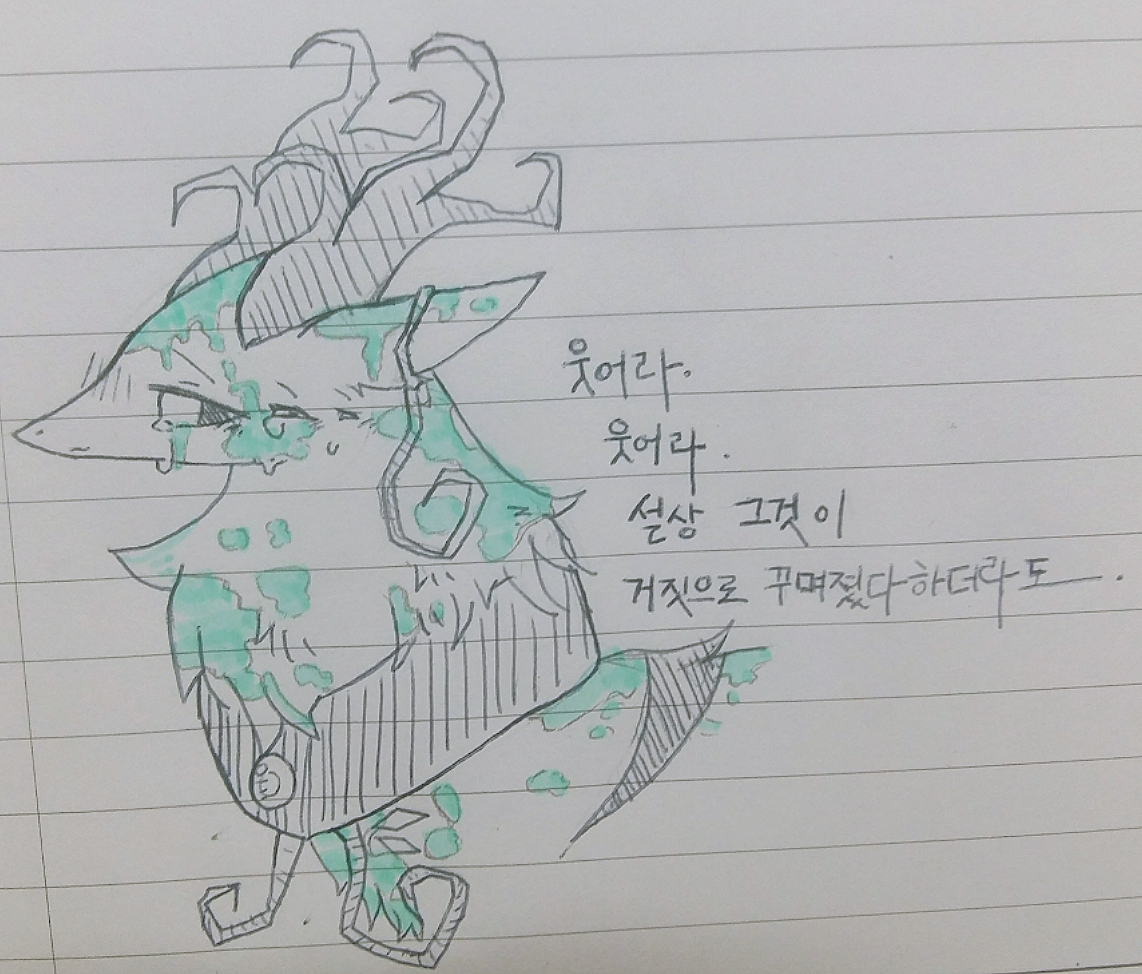 웃어라.
웃어라.
설상 그것이
거짓으로 꾸며졌다하더라도―.